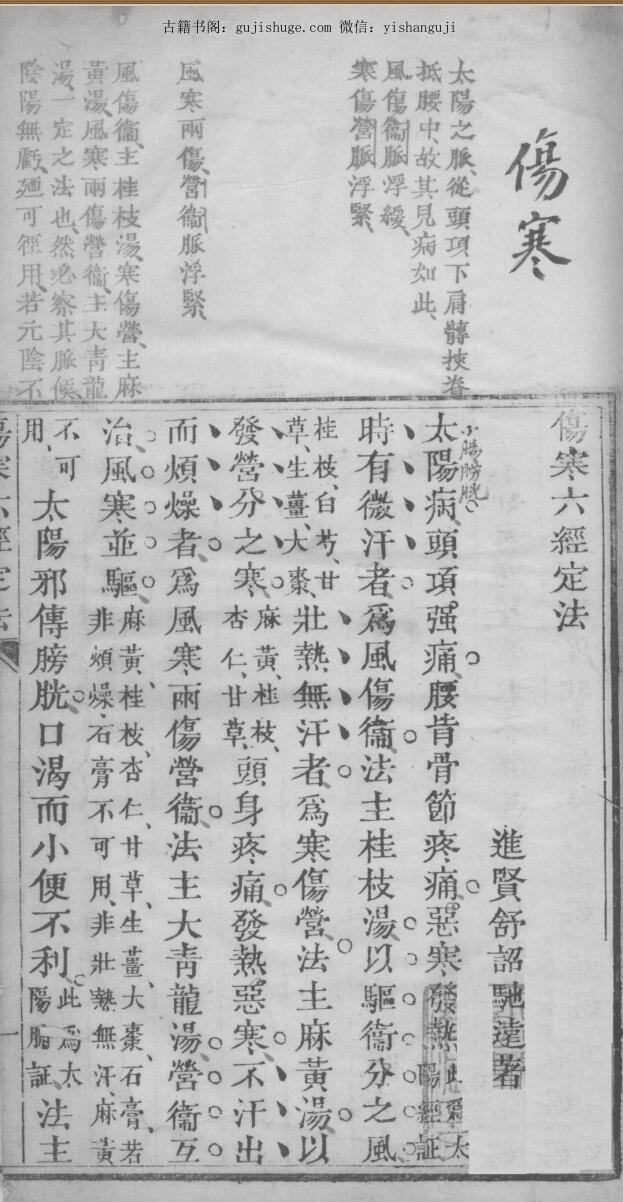 古籍书阁：gujishuge.com 微信：yishanguji
傷寒
太陽之脈、從頭項下肩髆挾脊
抵腰中、故其見病如此、
風傷衞脈浮緩、
寒傷營脈浮緊、
風寒兩傷營衞脈浮緊、
風傷衞、主桂枝湯、寒傷營、主麻
黃湯、風寒兩傷營衞、主大靑龍
湯、一定之法也、然必察其脈候、
陰陽無虧、廼可徑用、若元陰不
傷寒六經定法
進賢舒詔馳遠著
小腸膀胱
太陽病、頭項强痛、腰背骨節疼痛、惡寒發熱此爲太陽經証
時有微汗者、爲風傷衞、法主桂枝湯、以驅衞分之風
桂枝、白芍、甘草、生薑、大棗、壯熱無汗者、爲寒傷營、法主麻黃湯、以
發營分之寒麻黃、桂枝、杏仁、甘草、頭身疼痛、發熱惡寒、不汗出
而煩燥者、爲風寒兩傷營衞、法主大靑龍湯、營衞互
治、風寒並驅、麻黃、桂枝、杏仁、甘草、生薑、大棗、石膏、若非煩燥、石膏不可用、非壯熱無汗、麻黃
不可用、太陽邪傳膀胱、口渴而小便不利、此爲太陽腑証法主
傷寒六經定法
一